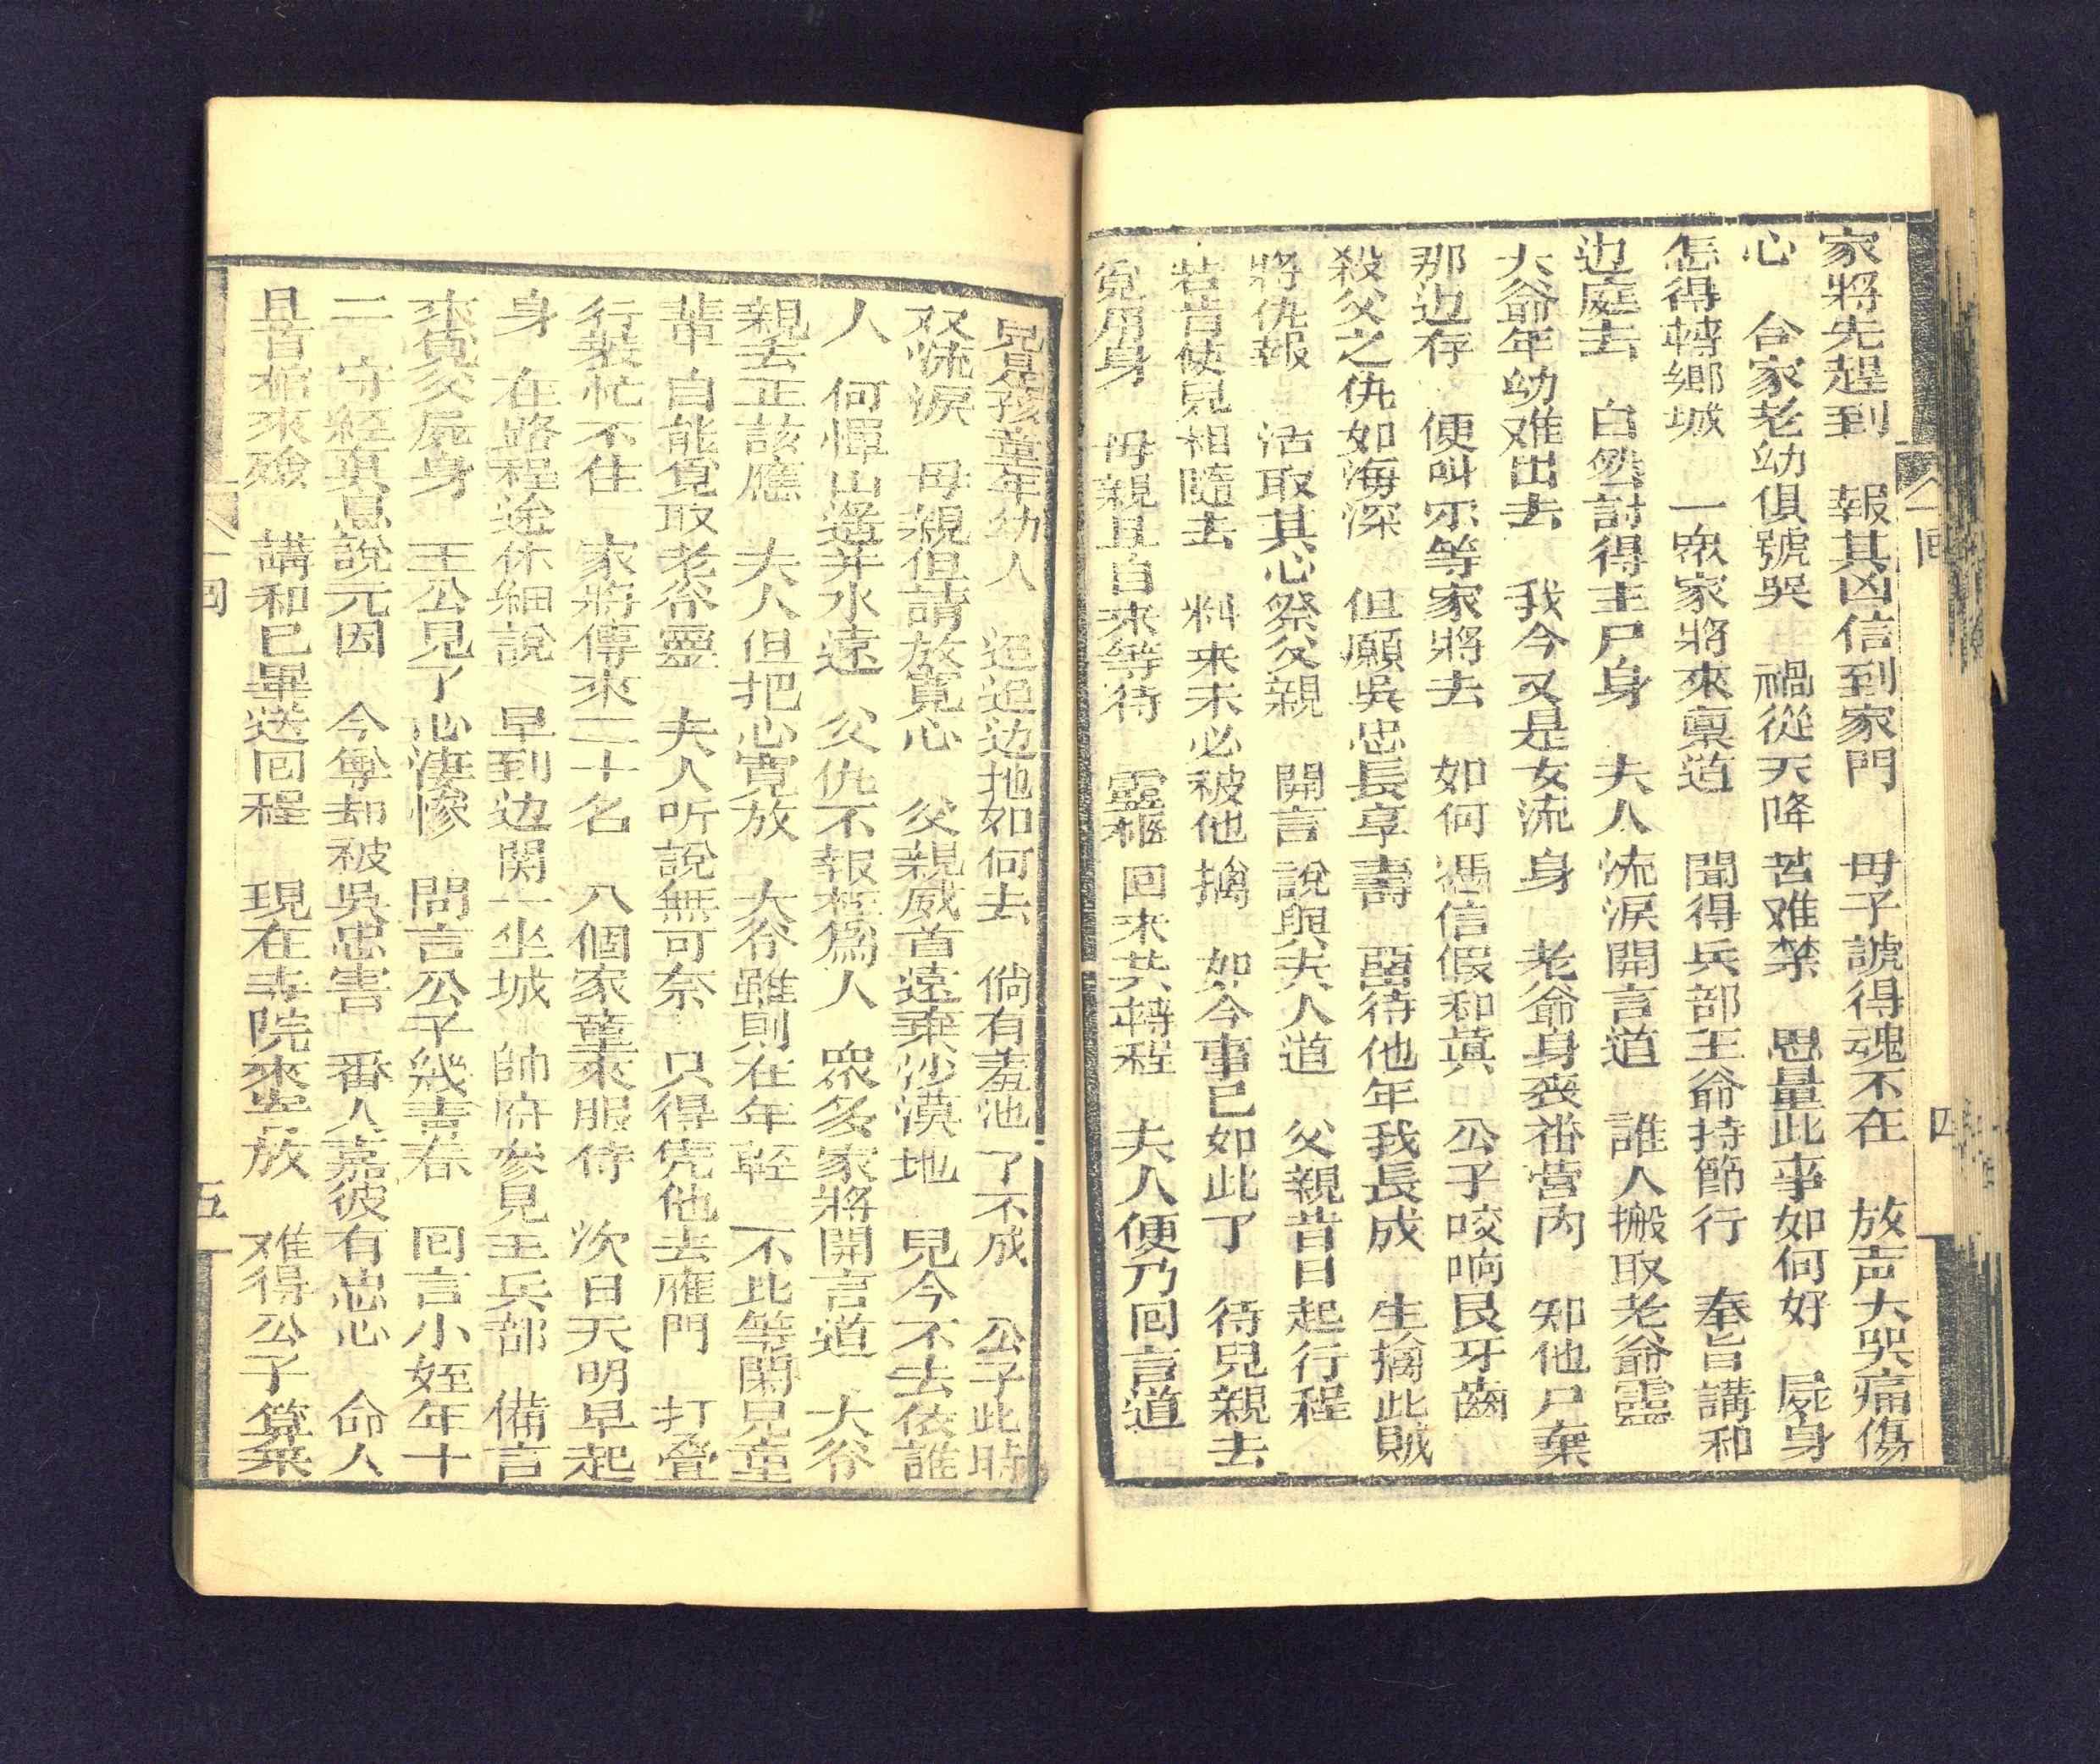 家將先趕到　報其凶信到家門　毋子諕得魂不在　放声大哭痛傷
心　合家老幼俱號哭　禍從天降苦难禁　思量此事如何好　屍身
怎得轉鄉城　一眾家將來稟道　聞得兵部王爺持節行　奉旨講和
边庭去　自然討得主尸身　夫人流淚開言道　誰人搬取老爺靈
大爺年幼难出去　我今又是女流身　老爺身丧番营内　知他尸棄
那边存　便叫尔等家將去　如何憑信假和真　公子咬响艮牙齒
殺父之仇如海深　但願吳忠長享壽　畱待他年我長成　生擒此賊
將仇報　活取其心祭父親　開言說與夫人道　父親昔日起行程
若肯使兒相隨去　料来未必被他擒　如今事已如此了　待兒親去
毋親且自来等待　靈柩回来共轉程　夫人便乃回言道
兒孩童年幼人　迢迢边地如何去　倘有羞池了不成　公子此時
双流淚　毋親但請放寬心　父親威首遠棄沙漠地　兒今不去依誰
人　何憚山遙并水遠　父仇不報枉爲人　眾多家將開言道　大爷
親去正該應　夫人但把心寬放　大爷雖則在年轻　不比等閑兒童
輩　自能覓取老爷靈　夫人听說無可奈　只得凭他去雁門　打叠
行裝忙不住　家將傳來二十名　八個家童來服侍　次日天明早起
身　在路程途休細說　早到边関一坐城　帥府參見王兵部　備言
來覓父屍身　王公見了心淒慘　問言公子幾青春　回言小姪年十
二　守經與息說元因　今尊却被吳忠害　番人嘉彼有忠心　命人
具首棺來殮　講和已畢送回程　現在寺院來安放　难得公子算來
一回
四
一回
五